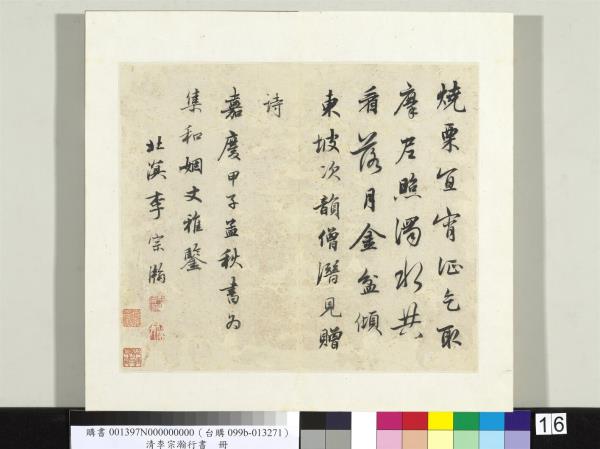 燒栗宜宵征乞取
摩尼照濁水共
看落月金盆傾
東坡次韻僧潛見贈
詩
嘉慶甲子孟秋書為
集和姻丈雅鑒
北溟李宗瀚
購書 001397N000000000 (台購 099b-013271)
清李宗瀚行書 冊
16